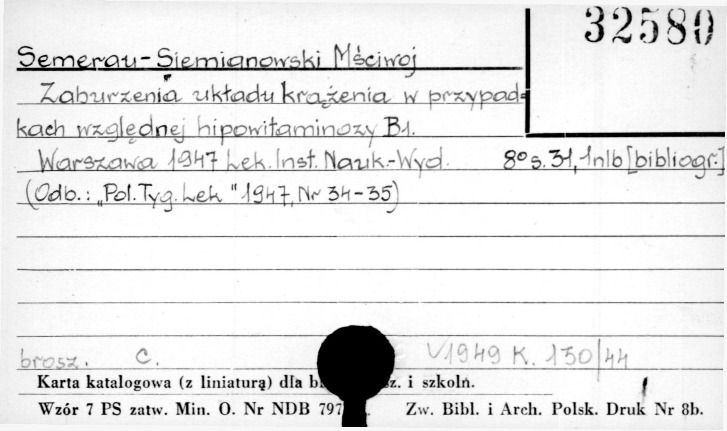 32580
Semerau-Siemianowski Mściwoj
Zaburzenia układu krążenia w przypad=
kach względnej hipowitaminozy B1.
Warszawa 1947 Lek. Inst. Nauk.-Wyd. 8° s. 31, 1nlb [bibliogr.]
(Odb.: „Pol. Tyg. Lek" 1947, Nr 34-35)
brosz. C. V 1949 K. 150/44
Karta katalogowa (z liniaturą) dla z. i szkoln.
Wzór 7 PS zatw. Min. O. Nr NDB 797 Zw. Bibl. i Arch. Polsk. Druk Nr 8b.